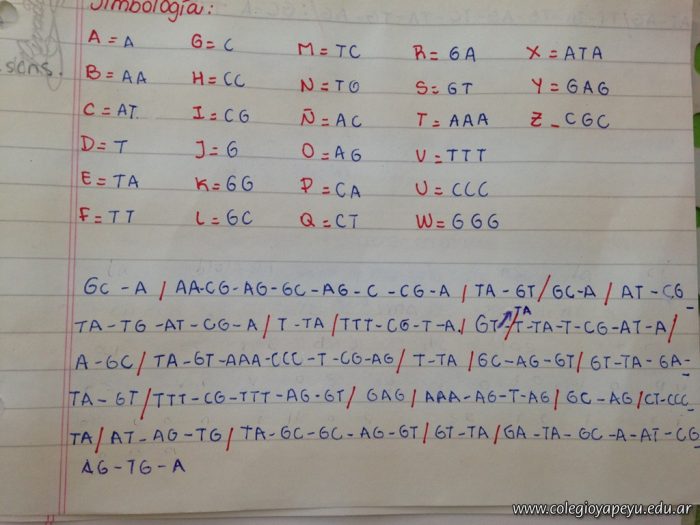 Simbología:
A = A   G = C   M = TC   R = GA   X = ATA
scns.
B = AA   H = CC   N = TG   S = GT   Y = GAG
C = AT   I = CG   Ñ = AC   T = AAA   Z - CGC
D = T   J = G   O = AG   V = TTT
E = TA   K = GG   P = CA   U = CCC
F = TT   L = GC   Q = CT   W = GGG
GC - A / AA-CG-AG-GC-AG-C-CG-A / TA-GT / GC-A / AT-CG-
TA-TG-AT-CG-A / T-TA / TTT-CG-T-A / GT-TA / T-TA-T-CG-AT-A /
A-GC / TA-GT-AAA-CCC-T-CG-AG / T-TA / GC-AG-GT / GT-TA-GA-
TA-GT / TTT-CG-TTT-AG-GT / GAG / AAA-AG-T-AG / GC-AG / CT-CCC-
TA / AT-AG-TG / TA-GC-GC-AG-GT / GT-TA / GA-TA-GC-A-AT-CG-
AG-TG-A
www.colegioyapeyu.edu.ar